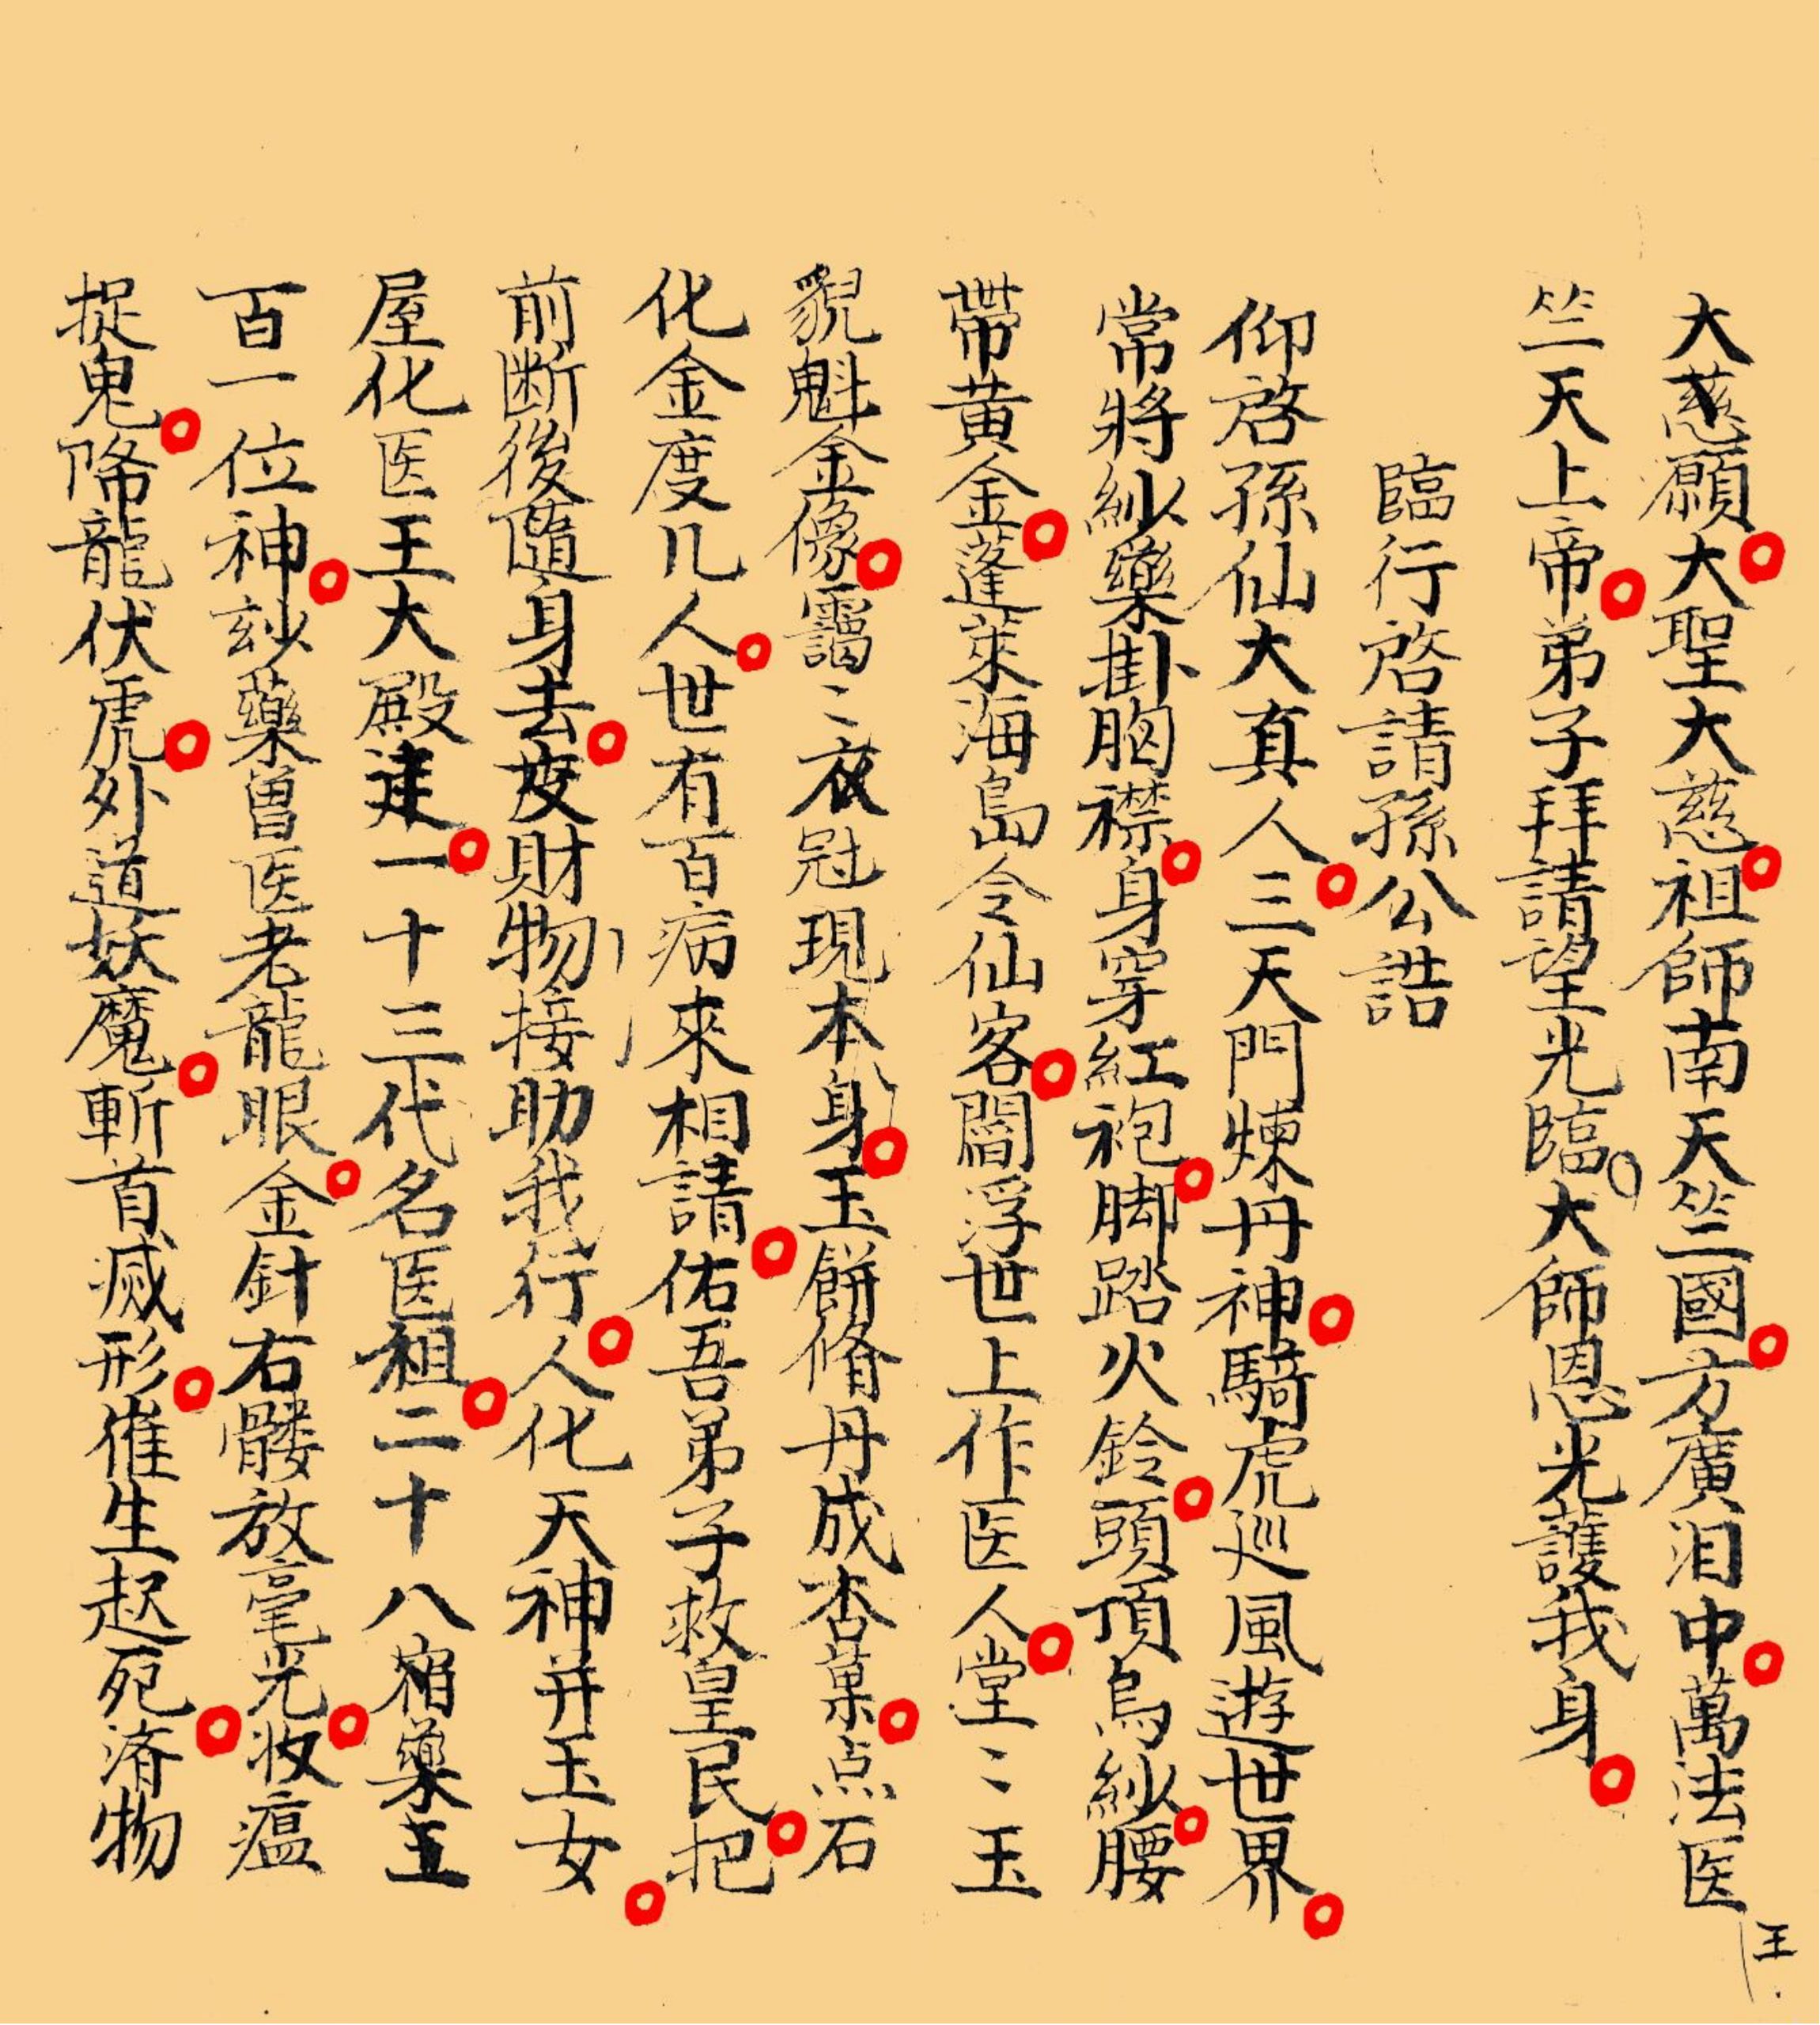 大慈願。大聖大慈。祖師南天竺國。方廣泪中。萬法医王
竺天上帝。弟子拜請望光臨。大師恩光護我身。
臨行啓請孫公誥
仰啓孫仙大真人。三天門煉丹神。騎虎巡風遊世界。
常將紗藥掛胸襟。身穿紅袍。脚踏火鈴。頭頂烏紗。腰
帶黄金。蓬萊海島令仙客。閻浮世上作医人。堂〻玉
貎魁金像。靄〻衣冠現本身。玉餅脩丹成杏菓。点石
化金度几人。世有百病來相請。佑吾弟子救皇民。把
前断後隨身去。度財物接助我行。人化天神并玉女。
屋化医王大殿建。一十三代名医祖。二十八宿藥王
百一位神。玅藥曽医老龍眼。金針右髅放毫光。妆瘟
捉鬼。降龍伏虎。外道妖魔。斬首滅形。催生起死。濟物